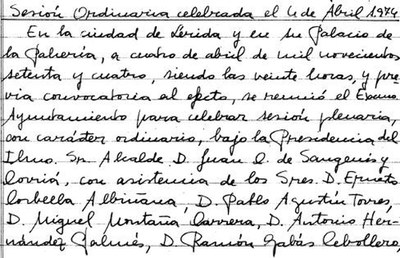 Sesión Ordinaria celebrada el 4 de Abril 1.974
En la ciudad de Lérida y en su Palacio de
la Pahería, a cuatro de abril de mil novecientos
setenta y cuatro, siendo las veinte horas, y pre
via convocatoria al efecto, se reunió el Excmo.
Ayuntamiento para celebrar sesión plenaria,
con carácter ordinario, bajo la Presidencia del
Iltmo. Sr. Alcalde D. Juan C. de Sangenis y
Corriá, con asistencia de los Sres. D. Ernesto
Corbella Albiñana, D. Pablo Agustín Torres,
D. Miguel Montaña Carrera, D. Antonio Her-
nández Palmés, D. Ramón Gabás Cebollero,